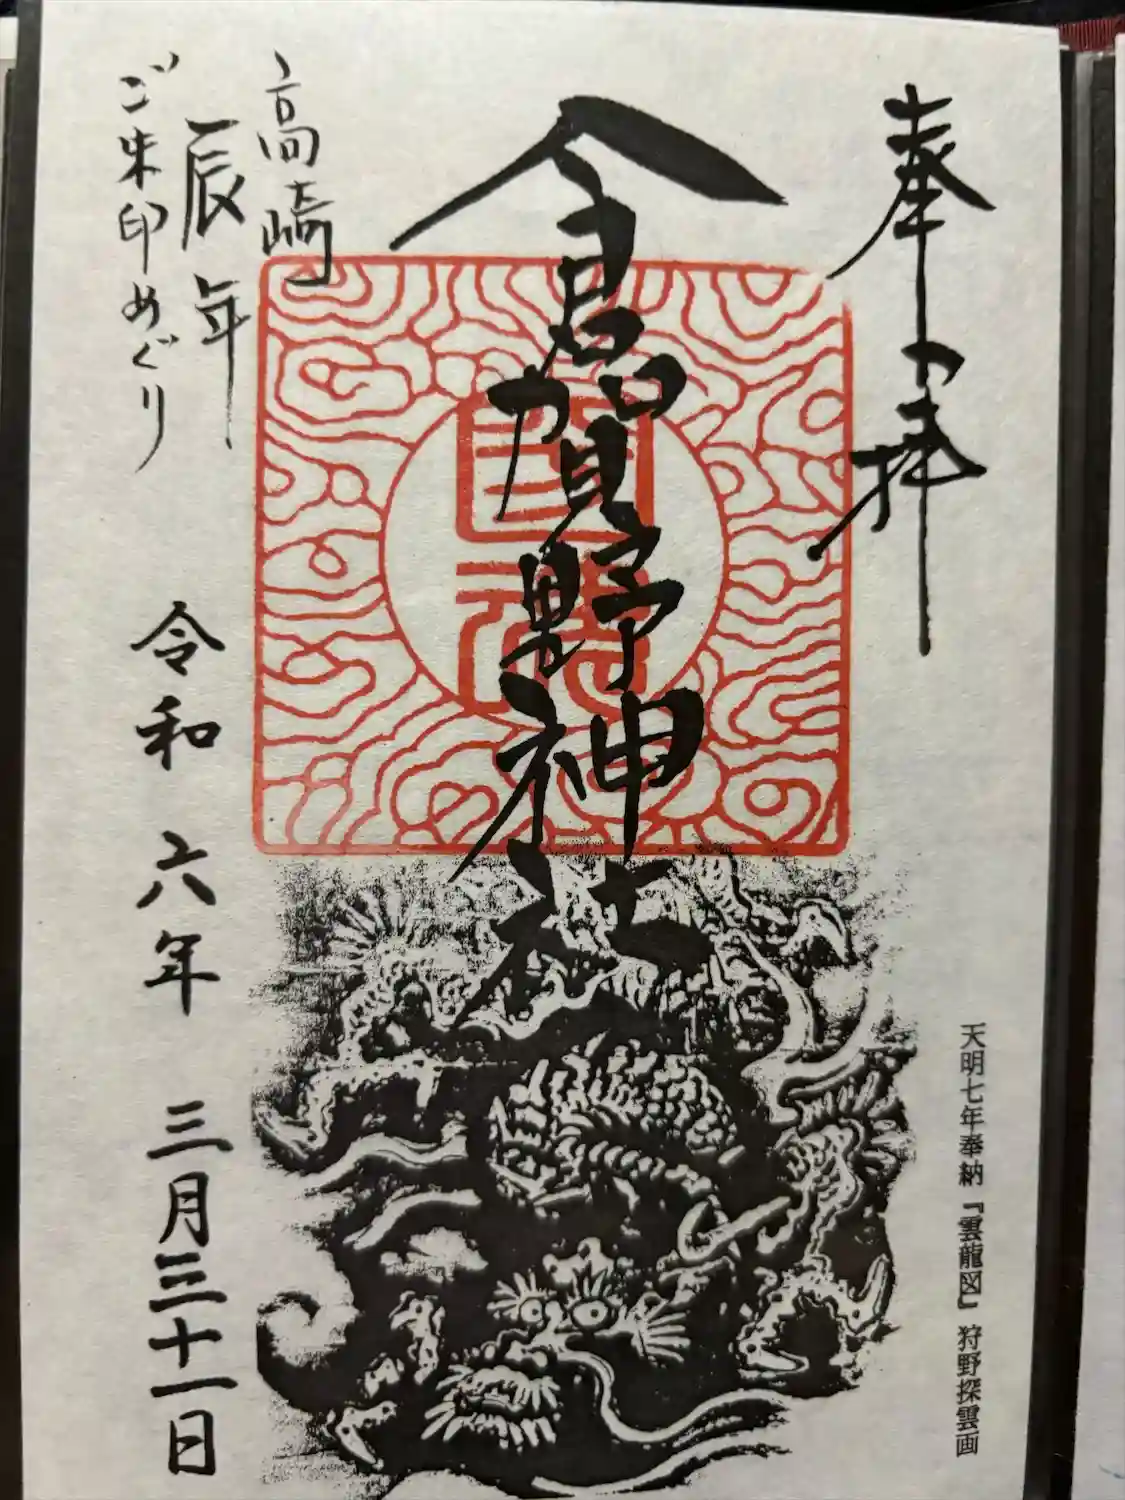 奉拝
天明七年奉納『雲龍図』狩野探雲画
倉賀野神社
高崎
辰年
ご朱印めぐり
令和六年三月三十一日